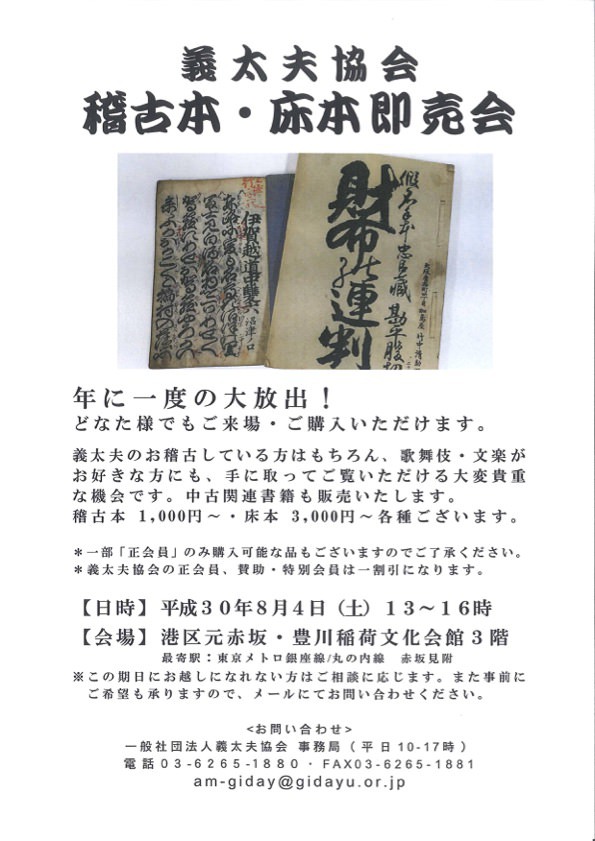 義太夫協会
稽古本・床本即売会
伊賀越道中雙六
沼津ノ口
財布の連判
假名手本忠臣蔵 勘平腹切
年に一度の大放出！
どなた様でもご来場・ご購入いただけます。
義太夫のお稽古している方はもちろん、歌舞伎・文楽が
お好きな方にも、手に取ってご覧いただける大変貴重
な機会です。中古関連書籍も販売いたします。
稽古本 1,000円～・床本 3,000円～各種ございます。
＊一部「正会員」のみ購入可能な品もございますのでご了承ください。
＊義太夫協会の正会員、賛助・特別会員は一割引になります。
【日時】平成３０年８月４日（土）１３～１６時
【会場】港区元赤坂・豊川稲荷文化会館３階
最寄駅：東京メトロ銀座線/丸の内線　赤坂見附
※この期日にお越しになれない方はご相談に応じます。また事前に
ご希望も承りますので、メールにてお問い合わせください。
<お問い合わせ>
一般社団法人義太夫協会 事務局（平日10-17時）
電話03-6265-1880・FAX03-6265-1881
am-giday@gidayu.or.jp